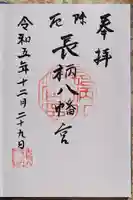 奉拝
除
厄
長柄八幡宮
令和五年十二月二十九日